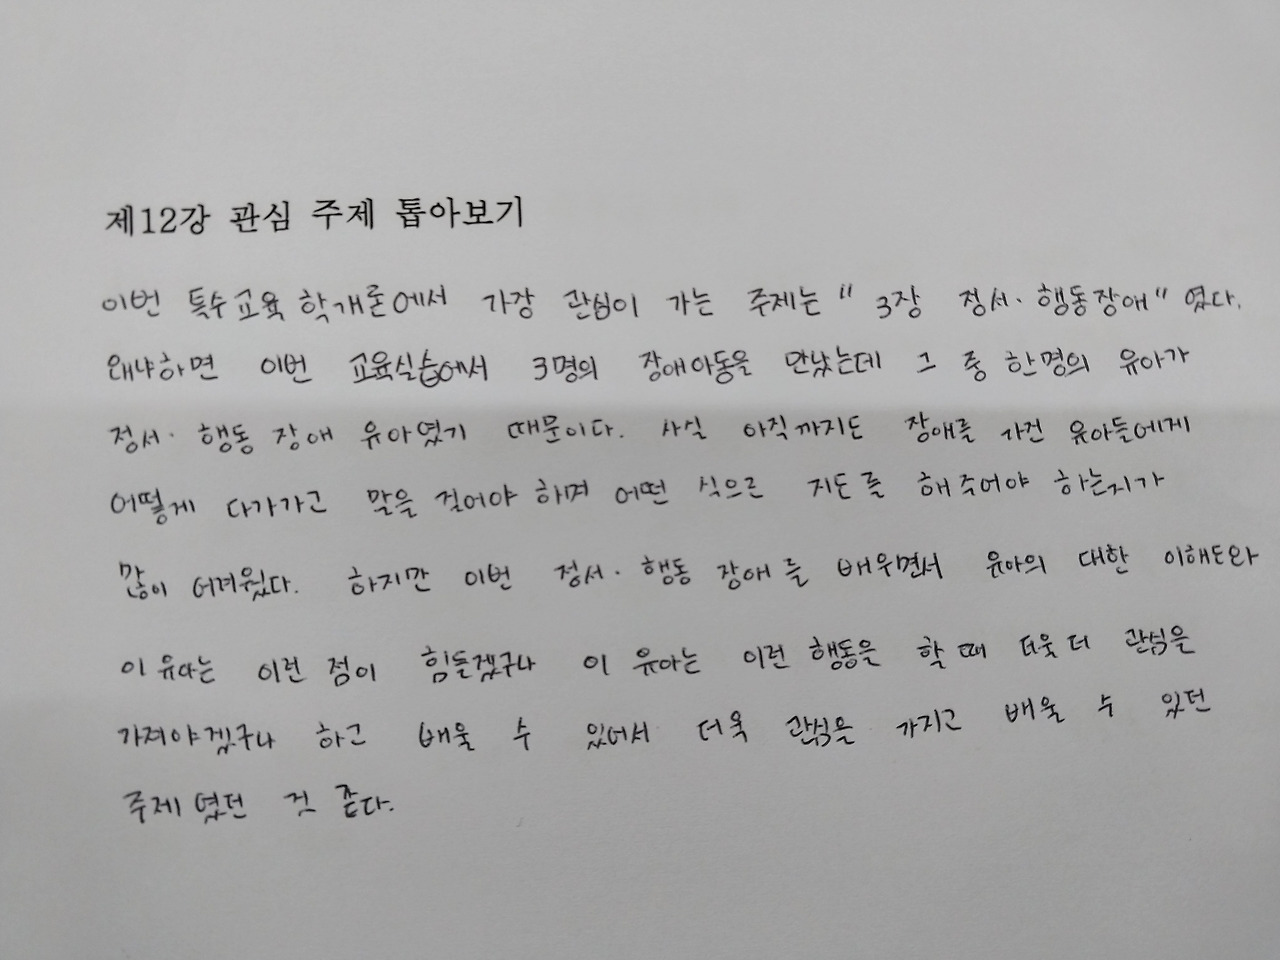 제12강 관심 주제 톺아보기
이번 특수교육학개론에서 가장 관심이 가는 주제는 "3장 정서·행동장애" 였다.
왜냐하면 이번 교육실습에서 3명의 장애아동을 만났는데 그 중 한명의 유아가
정서·행동 장애 유아였기 때문이다. 사실 아직까지도 장애를 가진 유아들에게
어떻게 다가가고 말을 걸어야 하며 어떤 식으로 지도를 해주어야 하는지가
많이 어려웠다. 하지만 이번 정서·행동 장애를 배우면서 유아의 대한 이해도와
이 유아는 이런 점이 힘들겠구나 이 유아는 이런 행동을 할 때 더욱 더 관심을
가져야겠구나 하고 배울 수 있어서 더욱 관심을 가지고 배울 수 있던
주제였던 것 같다.